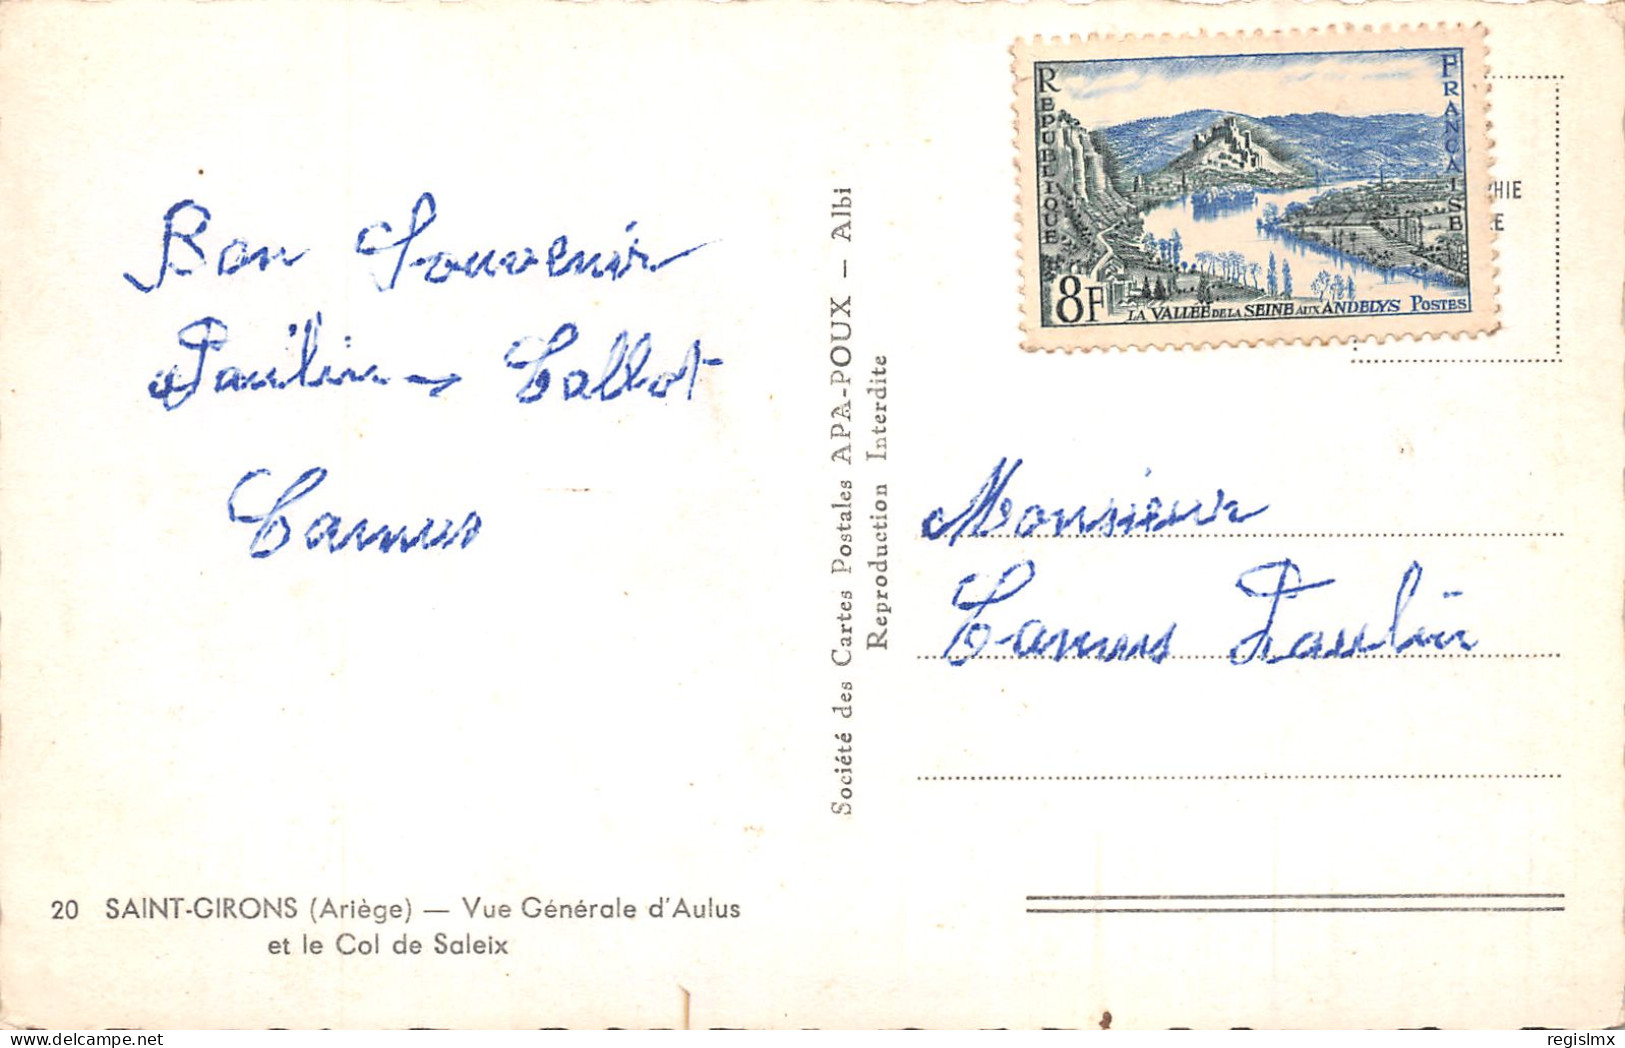 Bon Souvenir
Paulin
Camus
20 SAINT-GIRONS (Ariège) — Vue Générale d'Aulus
et le Col de Saleix
Société des Cartes Postales APA-POUX — Albi
Reproduction Interdite
REPUBLIQUE FRANCAISE
8F LA VALLEE DE LA SEINE AUX ANDELYS POSTES
Monsieur
Camus Paulin
www.delcampe.net
regislmx